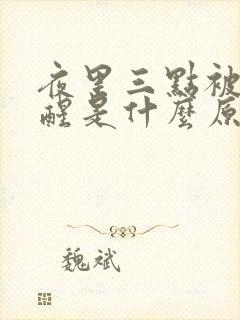 夜里三點被
醒是什麼原
魏斌